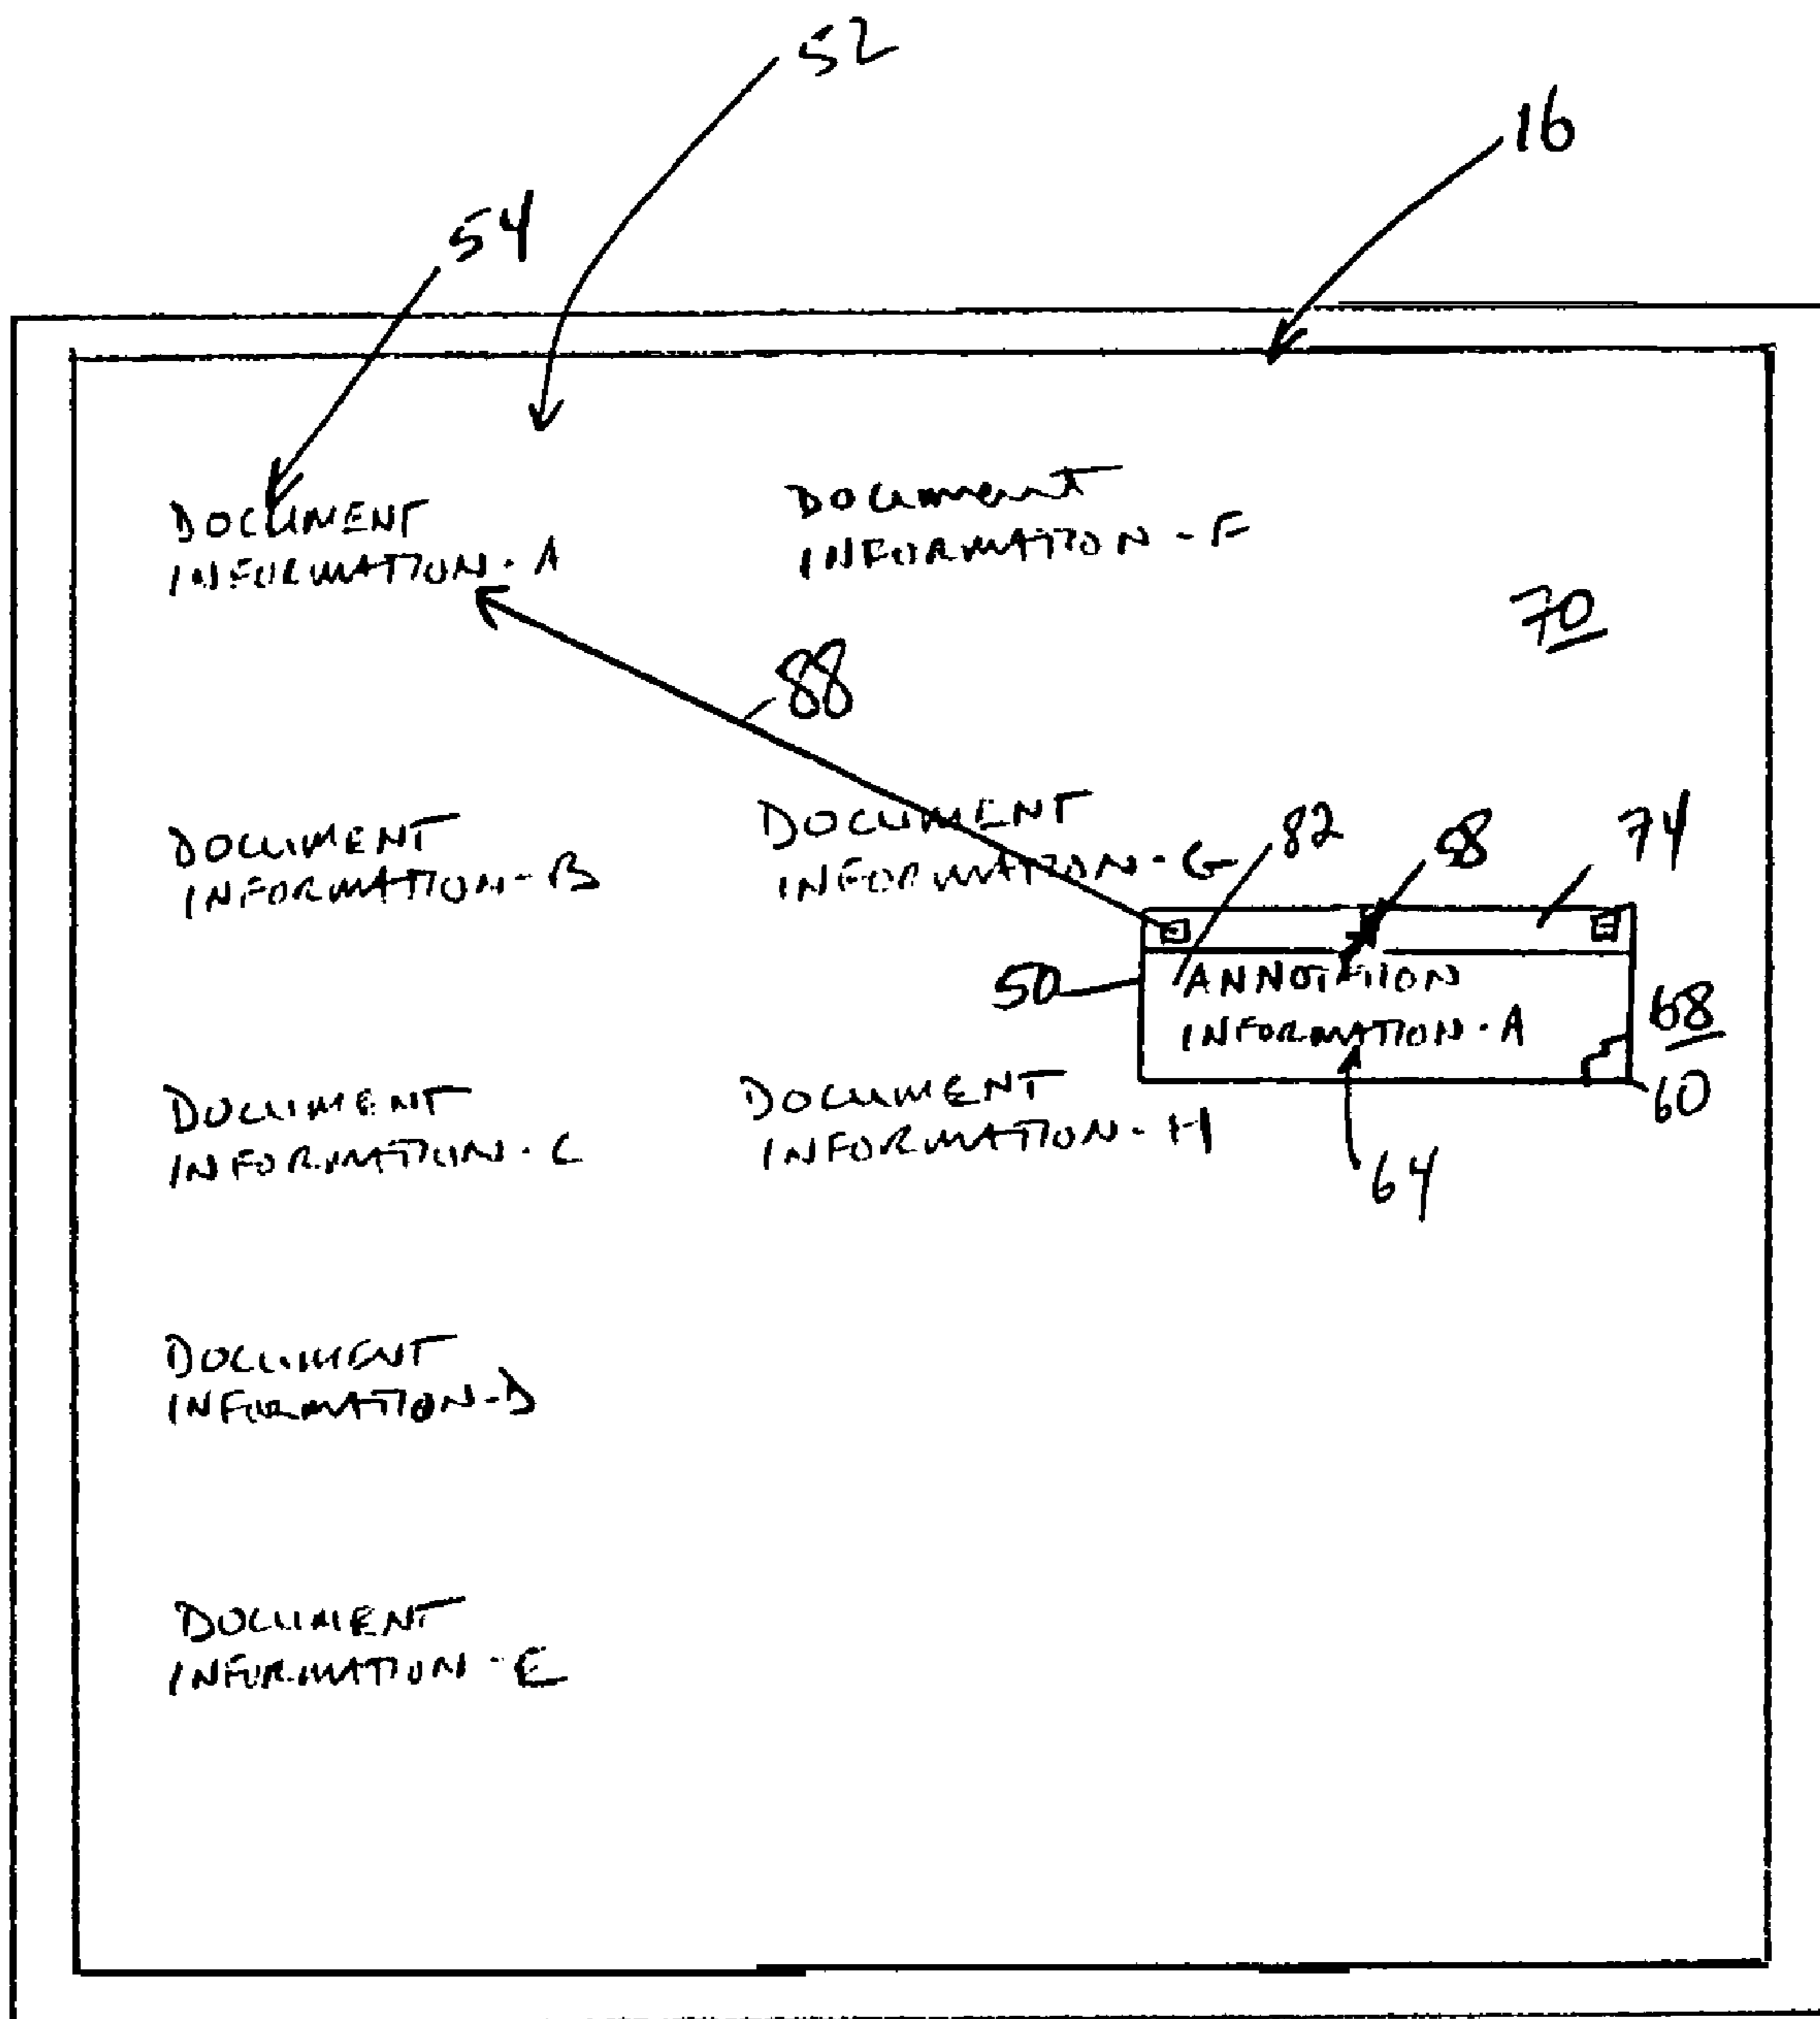 52
16
54
DOCUMENT
INFORMATION-A
DOCUMENT
INFORMATION-F
70
88
DOCUMENT
INFORMATION-B
DOCUMENT
INFORMATION-G
82
58
74
50
ANNOTATION
INFORMATION-A
68
60
64
DOCUMENT
INFORMATION-C
DOCUMENT
INFORMATION-H
DOCUMENT
INFORMATION-D
DOCUMENT
INFORMATION-E